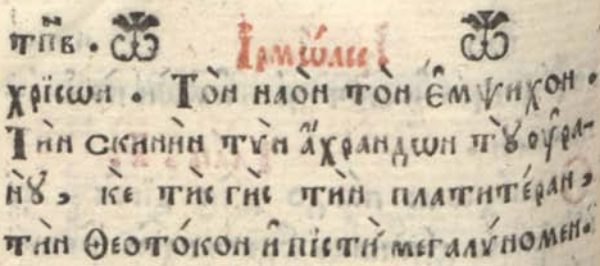 тп҃в . Ірмѡлсе .
хрїсѡн . То̀н нао̀н то̀н е҆́мѱихон .
Ти̇̀н скини̇̀н ти̇̀н а҆́храндѡн тꙋ̀ ѹ҆ра-
нꙋ̀, кѐ ти̇̀с ги̇̀с ти̇̀н платите́ран,
ти̇̀н Ѳеото́кон и҆ пїсти̇̀ мегалѵ́номен .